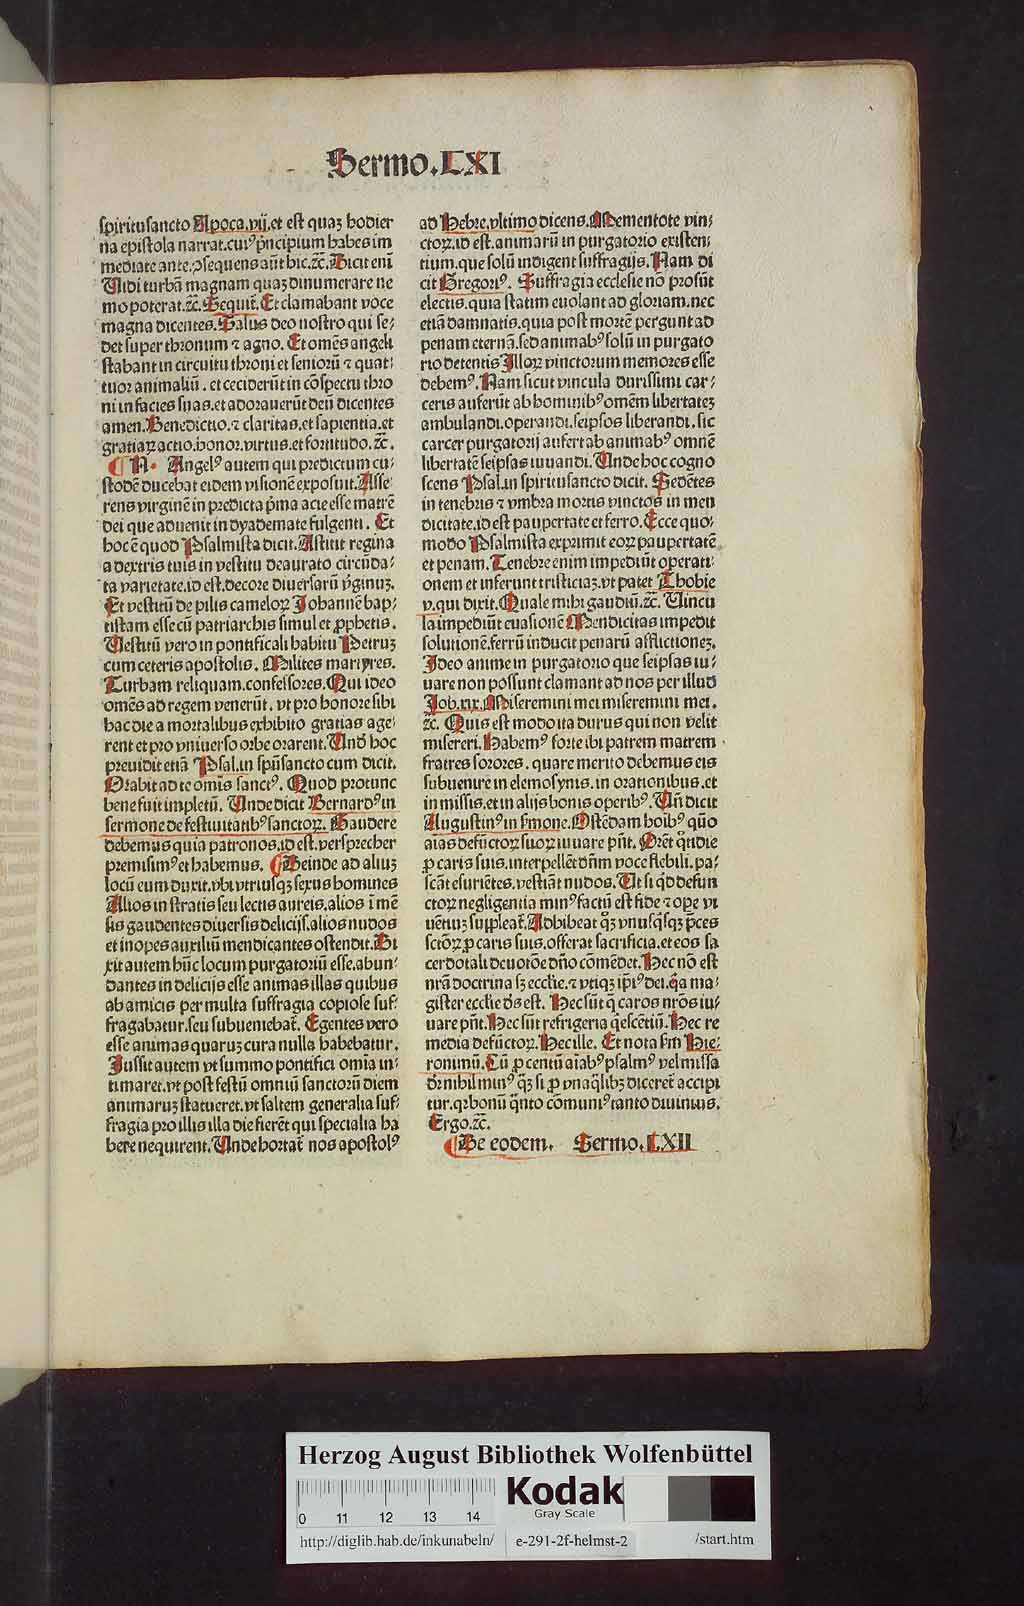 Sermo.LXI
spiritusancto Apoca.vij.et est quaʒ hodier
na epistola narrat.cui⁹ pͥncipium habes im
mediate ante.ꝯsequens aūt hic.ꝛc̄.Dicit eni̅
Vidi turbā magnam quaʒ dinumerare ne
mo poterat.ꝛc̄.Sequit̄.Et clamabant voce
magna dicentes.Salus deo nostro qui se⸗
det super thronum ⁊ agno. Et omēs angeli
stabant in circuitu throni et senioꝝ ⁊ quat⸗
tuor animaliū.et ceciderūt in cōspectu thro
ni in facies suas.et adorauerūt deū dicentes
amen.Benedictio.⁊ claritas.et sapientia.et
gratiaꝝ actio.honor.virtus.et fortitudo.ꝛc̄.
¶ N. Angel⁹ autem qui predictum cu⸗
stodē ducebat eidem visionē exposuit.Asse
rens virginē in predicta pͥma acie esse matrē
dei que aduenit in dyademate fulgenti. Et
hoc ē quod Psalmista dicit.Astitit regina
a dextris tuis in vestitu deaurato circūda⸗
ta varietate.id est.decore diuersarū vͥginuʒ.
Et vestitū de pilis cameloꝝ Johannē bap⸗
tistam esse cū patriarchis simul et ꝓphetis.
Vestitū vero in pontificali habitu Petruʒ
cum ceteris apostolis. Milites martyres.
Turbam reliquam.confessores.Qui ideo
omēs ad regem venerūt. vt pro honore sibi
hac die a mortalibus exhibito gratias age⸗
rent et pro vniuerso orbe orarent.Vnd̄ hoc
preuidit etiā Psal.in spūsancto cum dicit.
Orabit ad te omis̄ sanct⁹. Quod protunc
bene fuit impletū. Unde dicit Bernard⁹ in
sermone de festiuitatib⁹ sanctoꝝ. Gaudere
debemus quia patronos.id est.versprecher
premisim⁹ et habemus. ¶Deinde ad aliuʒ
locū eum duxit.vbi vtriusqʒ sexus homines
Alios in stratis seu lectis aureis.alios i̅ mē
sis gaudentes diuersis delicijs.alios nudos
et inopes auxiliū mendicantes ostendit.Di
xit autem hūc locum purgatoriū esse.abun⸗
dantes in delicijs esse animas illas quibus
ab amicis per multa suffragia copiose suf⸗
fragabatur.seu subueniebat̄. Egentes vero
esse animas quaruʒ cura nulla habebatur.
Jussit autem vt summo pontifici omi̅a in⸗
timaret.vt post festū omniū sanctorū diem
animaruʒ statueret.vt saltem generalia suf⸗
fragia pro illis illa die fierēt qui specialia ha
bere nequirent.Unde hortat̄ nos apostol⁹
ad Hebre.vltimo dicens.Mementote vin⸗
ctoꝝ.id est.animarū in purgatorio existen⸗
tium.que solū indigent suffragijs. Nam di
cit Gregori⁹. Suffragia ecclesie nō prosūt
electis.quia statim euolant ad gloriam.nec
etiā damnatis.quia post mortē pergunt ad
penam eternā.sed animab⁹ solū in purgato
rio detentis Illoꝝ vinctorum memores esse
debem⁹. Nam sicut vincula durissimi car⸗
ceris auferūt ab hominib⁹ omēm libertateʒ
ambulandi.operandi.seipsos liberandi.sic
carcer purgatorij aufert ab animab⁹ omnē
libertatē seipsas iuuandi.Unde hoc cogno
scens Psal.in spiritusancto dicit. Sedētes
in tenebris ⁊ vmbra mortis vinctos in men
dicitate.id est paupertate et ferro.Ecce quo⸗
modo Psalmista exprimit eoꝝ paupertatē
et penam.Tenebre enim impediūt operati⸗
onem et inferunt tristiciaʒ.vt patet Thobie
v.qui dixit.Quale mihi gaudiū.ꝛc̄.Vincu
la impediūt euasionē Mendicitas impedit
solutionē.ferrū inducit penarū afflictioneʒ.
Ideo anime in purgatorio que seipsas iu⸗
uare non possunt clamant ad nos per illud
Job.xix.Miseremini mei miseremini mei.
ꝛc̄. Quis est modo ita durus qui non velit
misereri.Habem⁹ forte ibi patrem matrem
fratres sorores.quare merito debemus eis
subuenire in elemosynis.in orationibus.et
in missis.et in alijs bonis operib⁹.Vn̄ dicit
Augustin⁹ in s̄mone.Ostēdam hoi̅b⁹ quō
aīas defūctoꝝ suoꝝ iuuare pn̄t.Orēt q̊tidie
ꝓ caris suis.interpellēt dn̄m voce flebili.pa⸗
scāt esuriētes.vestiāt nudos.Ut si qͥd defun
ctoꝝ negligentia min⁹ factū est fide ⁊ ope vi
uētiuʒ suppleat̄.Adhibeat qʒ vnusqͥsqʒ pͥces
sctōꝝ ꝓ caris suis.offerat sacrificia.et eos sa
cerdotali deuotōe dn̄o cōmēdet.Hec nō est
nr̄a doctrina sʒ eccl̄ie.⁊ vtiqʒ ip̄i⁹ dei.qͥa ma⸗
gister eccl̄ie de̅s est. Hec sūt q̄ caros nr̄os iu⸗
uare pn̄t.Hec sūt refrigeria qͥescētiū.Hec re
media defūctoꝝ.Hec ille. Et nota s̄m Hie⸗
ronimū.Cū ꝓ centū aīab⁹ psalm⁹ vel missa
dr̄.nihil min⁹ qʒ si ꝓ vnaqͣlibʒ diceret̄ accipi
tur.qꝛ bonū qͣnto cōmuni⁹ tanto diuinius.
Ergo.ꝛc̄.
¶De eodem. Sermo.LXII
Herzog August Bibliothek Wolfenbüttel
0 11 12 13 14
Kodak
Gray Scale
http://diglib.hab.de/inkunabeln/ e-291-2f-helmst-2 /start.htm